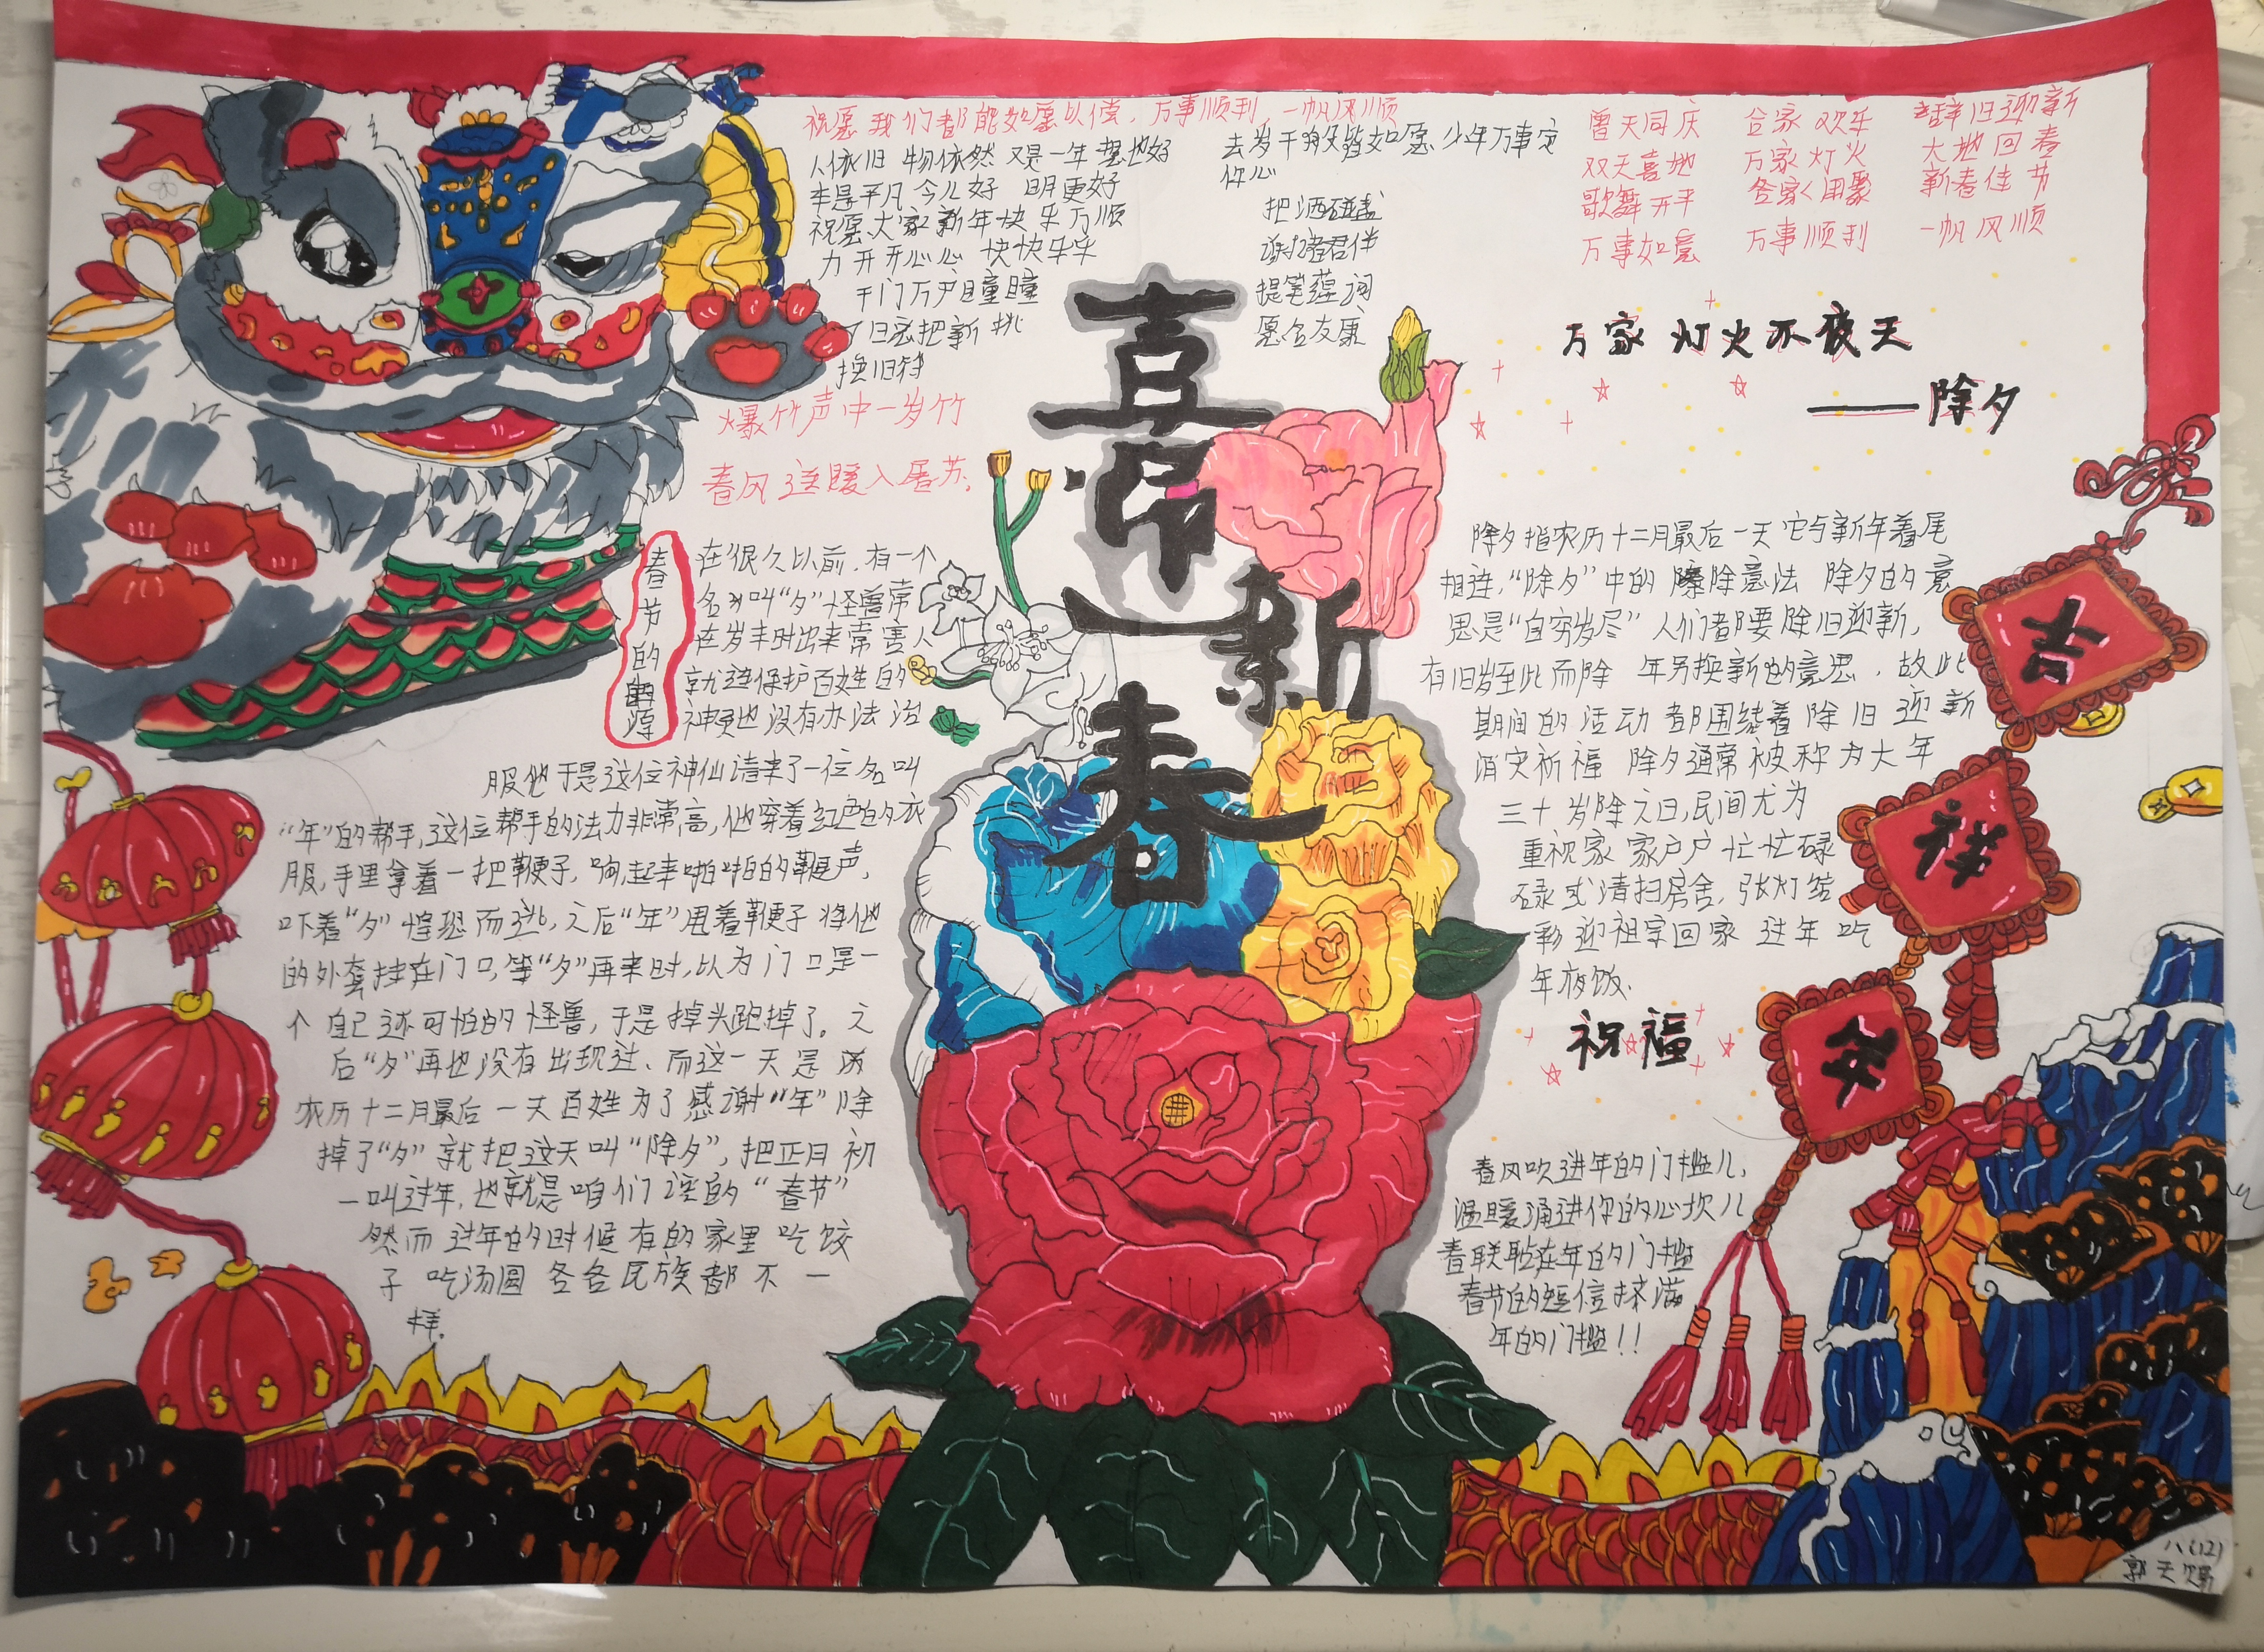 祝愿我们都能如愿以偿，万事顺利，一帆风顺
人依旧 物依然 又是一年
平凡 今儿好 明更好
祝愿大家新年快乐万顺
开开心心 快快乐乐
千门万户曈曈
把新桃
换旧符
去岁千般皆如愿 少年万事定
你心
把酒
诸君伴
提笔 词
愿 友康
普天同庆 合家欢乐 辞旧迎新
双天喜地 万家灯火 大地回春
歌舞升平 新春佳节
万事如意 万事顺利 一帆风顺
爆竹声中一岁竹
春风送暖入屠苏。
喜
迎
新
春
万家灯火不夜天
——除夕
春节的 源
在很久以前，有一个
名为叫“夕”怪兽常
在岁末时出来常害人
就连保护百姓的
神灵也没有办法治
服他于是这位神仙请来了一位名叫
“年”的帮手，这位帮手的法力非常高，他穿着红色的衣
服，手里拿着一把鞭子，响起来啪啪的鞭声，
吓着“夕”惶恐而逃，之后“年”甩着鞭子将他
的外套挂在门口，等“夕”再来时，以为门口是一
个自己还可怕的怪兽，于是掉头跑掉了。之
后“夕”再也没有出现过、而这一天是
农历十二月最后一天百姓为了感谢“年”除
掉了“夕”就把这天叫“除夕”，把正月初
一叫过年，也就是咱们 的“春节”
然而过年的时候有的家里吃饺
子 吃汤圆 各各民族都不一
样。
除夕指农历十二月最后一天 它与新年着尾
相连，“除夕”中的 除意法 除夕的意
思是“自穷岁尽” 人们都要除旧迎新，
有旧岁至此而除 年另换新的意思，故此
期间的活动都围绕着除旧迎新
消灾祈福 除夕通常被称为大年
三十岁除之日，民间尤为
重视家家户户忙忙碌
碌或清扫房舍，张灯结
彩迎祖宗回家 过年吃
年夜饭、
祝福
春风吹进年的门槛儿，
温暖涌进你的心坎儿
春联 在年的门槛
春节的短信 满
年的门槛！！
吉
祥
年
八(12)
郭天赐